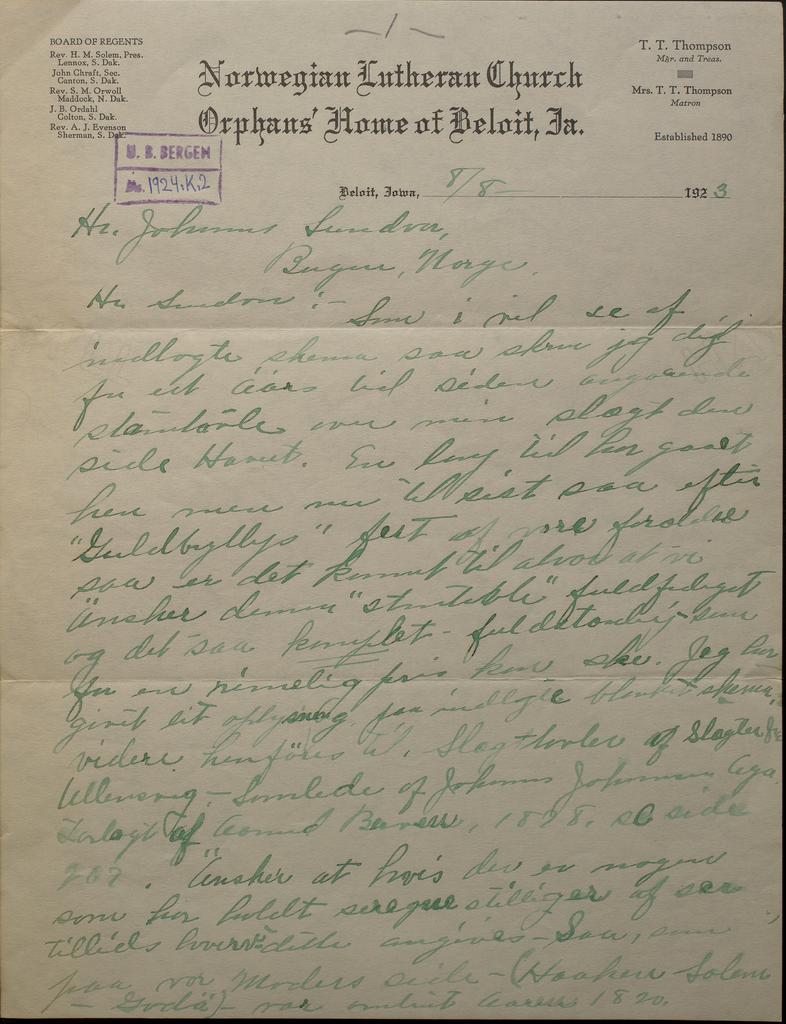 -1-
BOARD OF REGENTS
Rev. H. M. Solem, Pres.
Lennox, S. Dak.
John Chraft, Sec.
Canton, S. Dak.
Rev. S. M. Orwoll
Maddock, N. Dak.
J. B. Ordahl
Colton, S. Dak.
Rev. A. J. Evenson
Sherman, S. Dak.
Norwegian Lutheran Church
Orphans' Home of Beloit, Ia.
T. T. Thompson
Mgr. and Treas.
Mrs. T. T. Thompson
Matron
Established 1890
U. B. BERGEN
No. 1924.K.2
Beloit, Iowa, 8/8 1923
Hr. Johannes Sundvor,
Bergen, Norge.
Hr Sundvor :- Som i vil se af
indlagte skema saa skrev jeg dig
for et Aars tid siden angaaende
stamtavle over min slægt den
side Havet. En lang tid har gaaet
hen men nu til sist saa efter
"Guldbryllup" fest af vore foreldre
saa er det kommet til alvor at vi
önsker denne "stamtavle" fuldfærdiget
og det saa komplet - fuldstændig som
for en rimelig pris kan ske. Jeg har
givet lit oplysning paa indlagte blanket skema,
videre henföres til, Slægttavler af Slægter fra
Ullensvang - Samlede af Johannes Johannesen Aga
Forlagt af Amund Berven, 1898. se side
207. Önsker at hvis der er nogen
som har holdt seregne stillinger af
tillids hverv dette angives - Saa, som
paa vor Moders side - (Haaken Solem
- Godö) - var omkring Aaren 1820.